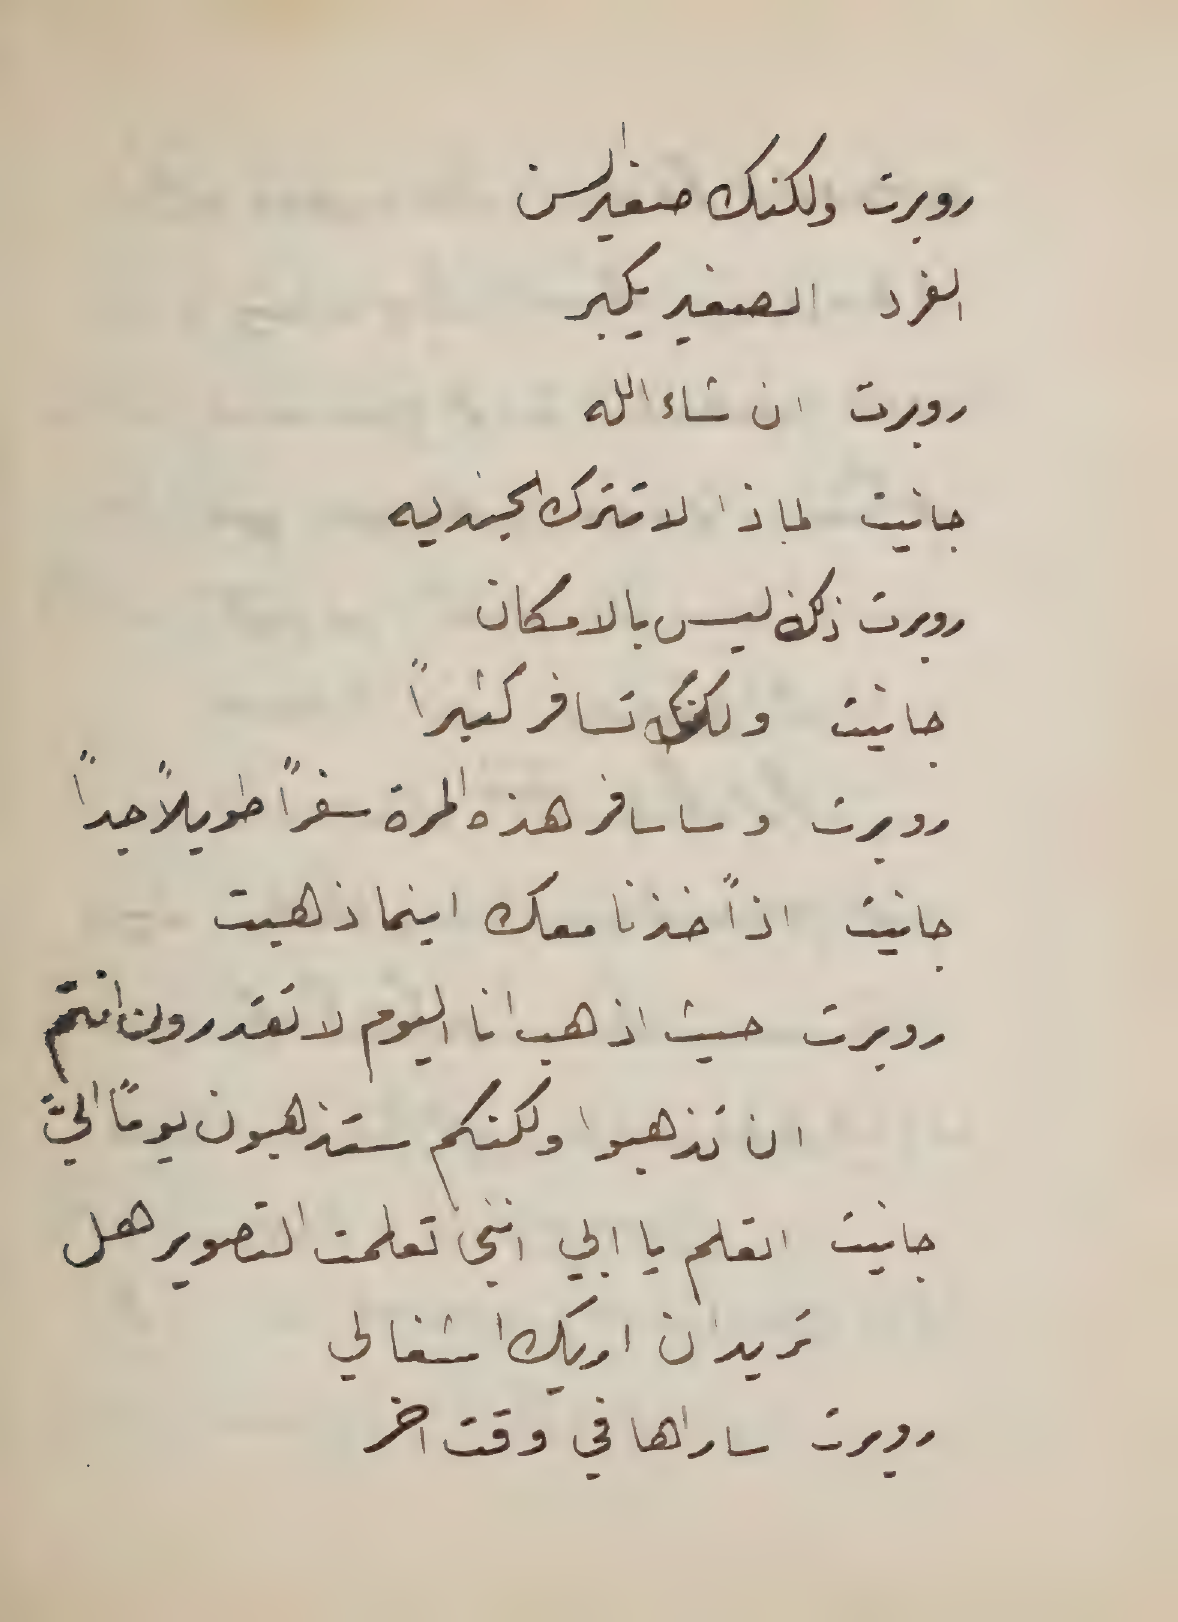 روبرت ولكنك صغير السن
الفرد الصغير يكبر
روبرت ان شاء الله
جانيت لماذا لا تترك الجنديه
روبرت ذلك ليس بالامكان
جانيت ولكنك تسافر كثيراً
روبرت وساسافر هذه المرة سفراً طويلاً جداً
جانيت اذاً خذنا معك اينما ذهبت
روبرت حيث اذهب انا اليوم لا تقدرون انتم
ان تذهبوا ولكنكم ستذهبون يوماً اليَّ
جانيت اتعلم يا ابي انني تعلمت التصوير هل
تريد ان اريك اشغالي
روبرت ساراها في وقت اخر